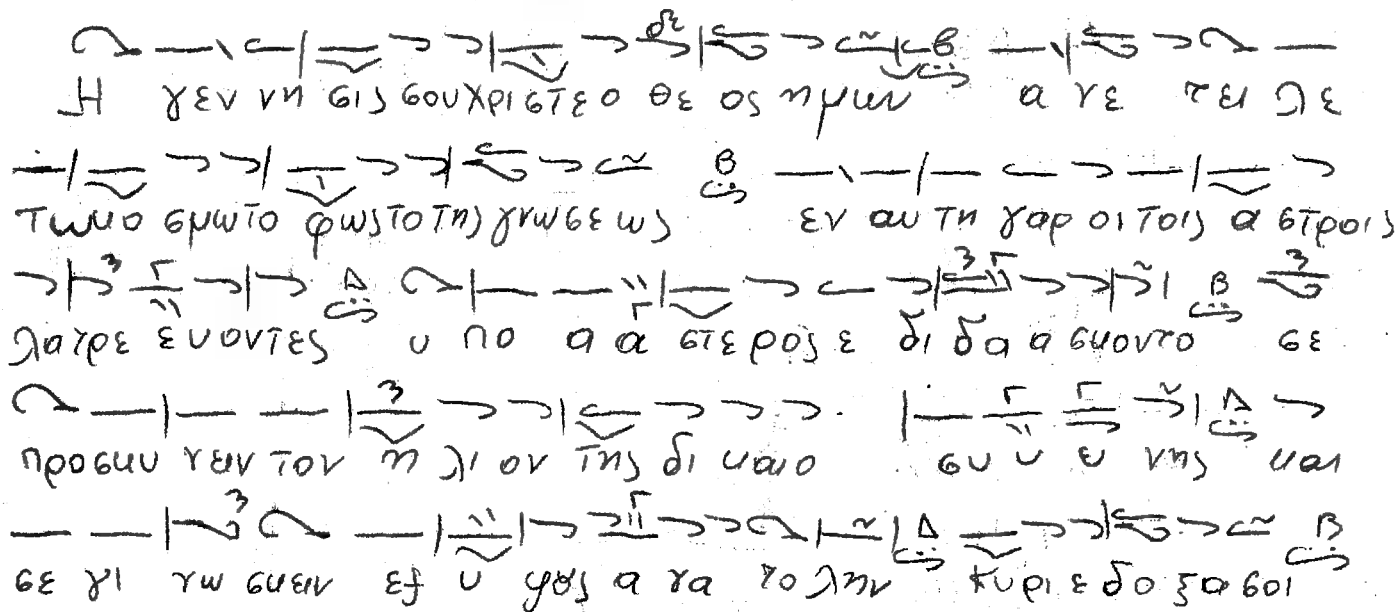 Η γεν νη σις σου χρι στε ο θε ος η μων α νε τει λε
τω κο σμω το φως το της γνω σε ως εν αυ τη γαρ οι τοις α στροις
λα τρε ε υον τες υ πο α α στε ρος ε δι δα α σκον το σε
προ σκυ νειν τον η λι ον της δι και ο συ υ υ νης και
σε γι νω σκειν εξ υ ψους α να το λην κυ ρι ε δο ξα σοι